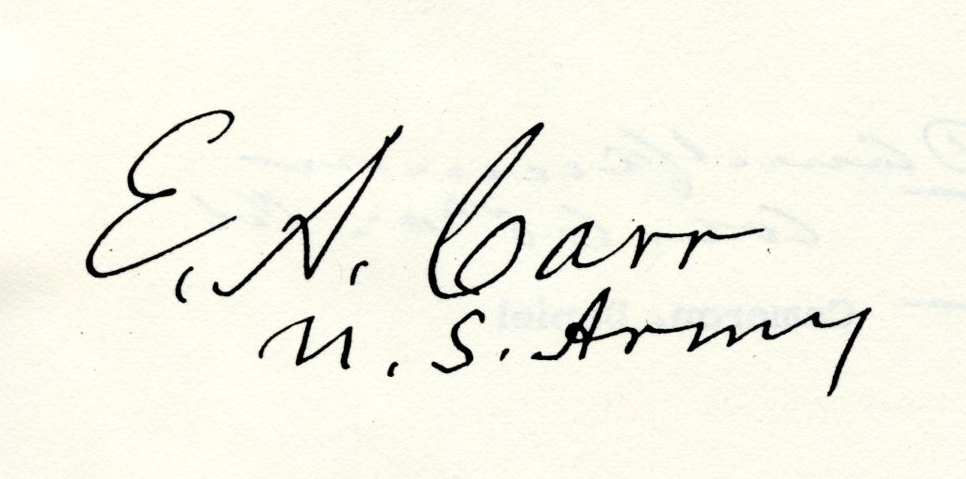 E. A. Carr
U. S. Army